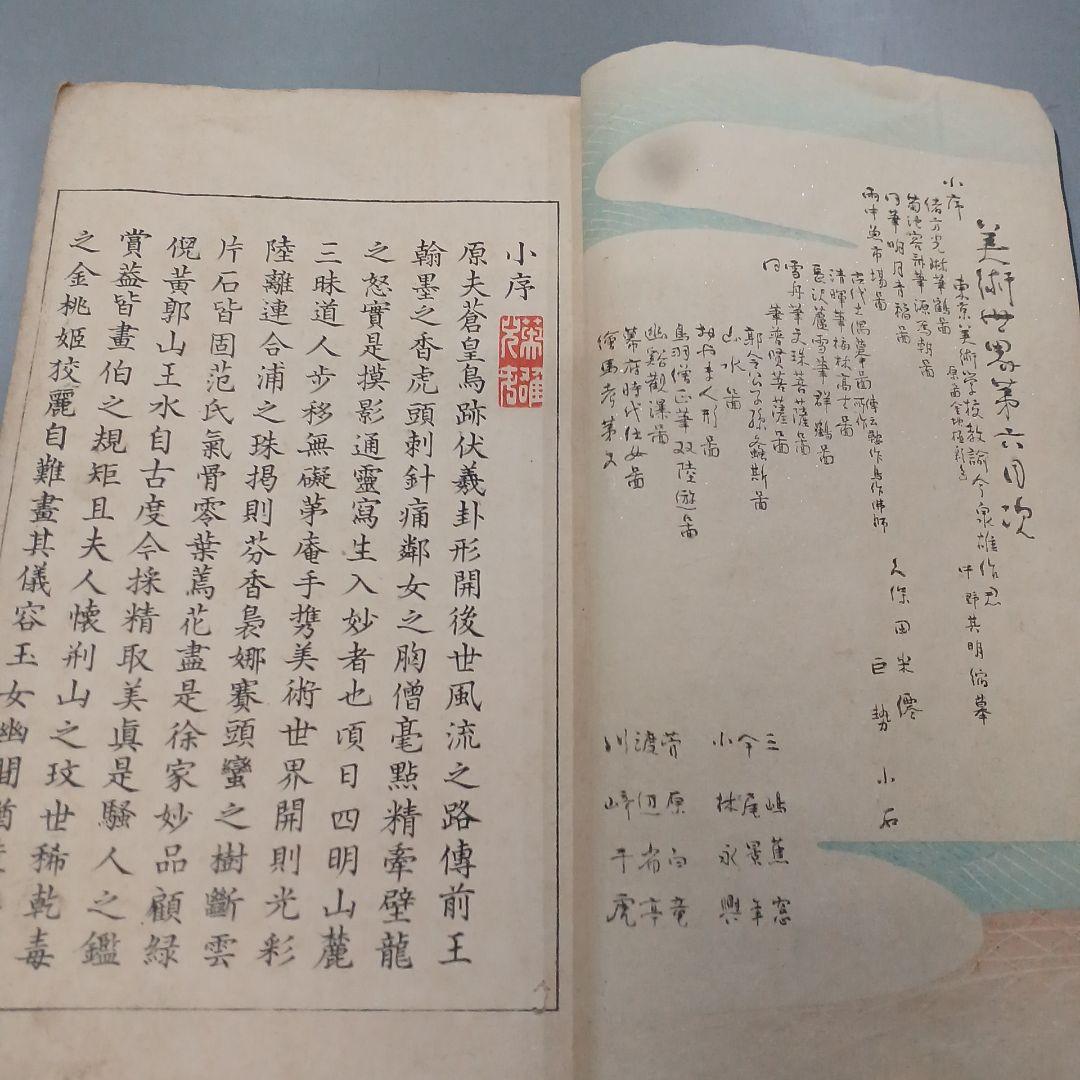 美術世界第六目次
小序
東京美術学校教諭今泉雄作君
緒方光琳筆鶴圖
中野其明縮摹
菊池容斎筆源為朝圖
同筆明月青稲圖
雨中魚市場圖
久保田米僊
古代土偶
巨勢小石
清暉筆梅林高士圖
長沢蘆雪筆群鶴圖
雪舟筆文珠菩薩圖
同筆普賢菩薩圖
郭令公子孫螽斯圖
三嶋蕉窓
山水圖
今尾景年
人形圖
小林永興
鳥羽僧正筆双陸遊圖
菅原白竜
幽谿觀瀑圖
渡辺省亭
幕府時代仕女圖
川崎千虎
繪馬考第
小序
原夫蒼皇鳥跡伏羲卦形開後世風流之路傳前王
翰墨之香虎頭刺針痛鄰女之胸僧毫點精牽壁龍
之怒實是摸影通靈寫生入妙者也頃日四明山麓
三昧道人步移無礙茅庵手携美術世界開則光彩
陸離連合浦之珠揭則芬香裊娜賽頭蠻之樹斷雲
片石皆固范氏氣骨零葉蔫花盡是徐家妙品顧緑
倪黃郭山王水自古度今採精取美眞是騷人之鑑
賞葢皆畫伯之規矩且夫人懐荊山之玟世稀乾毒
之金桃姬姣麗自難畫其儀容玉女幽間